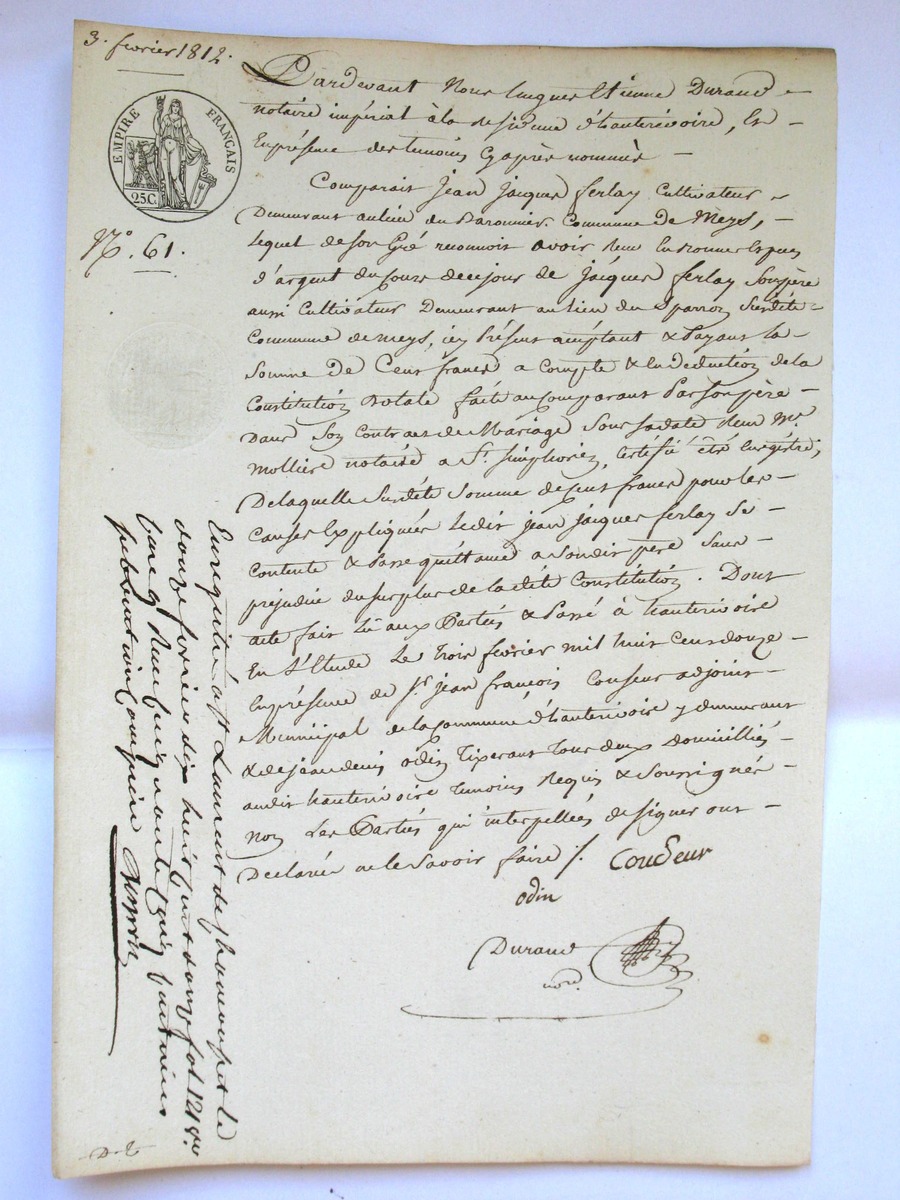 3. fevrier 1812.
EMPIRE FRANÇAIS
25C.
N.° 61.
Pardevant Nous Etienne Durand
notaire impérial à la residence d'hauterivoire, En
Enprésence des temoins Cyaprès nommés
Comparait jean jacques ferlay Cultivateur
Demeurant aulieu du Baronnier Commune De Meys,
Lequel deson Gré reconnoit avoir reçu En
d'argent du cours decejour de jacques ferlay Sonpère
aussi Cultivateur Demeurant aulieu du Surditte
Commune de meys, icy Présent acceptant & Payant la
Somme De Cent francs a Compte & En Deduction de la
Constitution Dotale faite aucomparant Parsonpère
Dans Son Contract de Mariage Sous sa date Reçu M.e
Molliere notaire a S.t Simphorien, Certifié être Enrégistré,
Delaquelle Surdite Somme de Cent francs pour les
Causes Expliquées Ledit jean jacques ferlay Se
Contente & Passe quittance a Sondit père Sans
préjudice du surplus de ladite Constitution. Dont
acte fait Lû aux Parties & Passé à hauterivoire
En L'Etude Le trois fevrier mil huit Cent douze
Enprésence de S.r jean françois Couseur adjoint
Municipal de la Commune d'hauterivoire y demeurant
& de jean denis odin Tixerant tous deux Domiciliés
audit hauterivoire temoins Requis & Soussignés
non Les Parties qui interpellées de signer ont
Déclarée ne le Savoir faire ./.
Coudeur
odin
Durand
no.re
Enregistré a St Laurent de chamousset le
douze fevrier dix huit cent douze fol 121 R.o
Case 9 Reçu cinquante cinq centimes